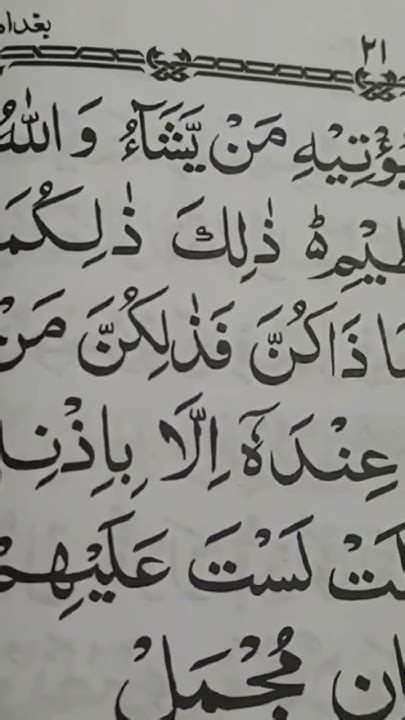 ٢١ بغداد
يُؤْتِيْهِ مَنْ يَّشَآءُ وَاللّٰهُ
ظِيْمِ ؕ ذٰلِكَ ذٰلِكُمَا
ذَاكُنَّ فَذٰلِكُنَّ مَنْ
عِنْدَهٗٓ اِلَّا بِاِذْنِ
لَسْتَ عَلَيْهِمْ
مُجْمَلْ